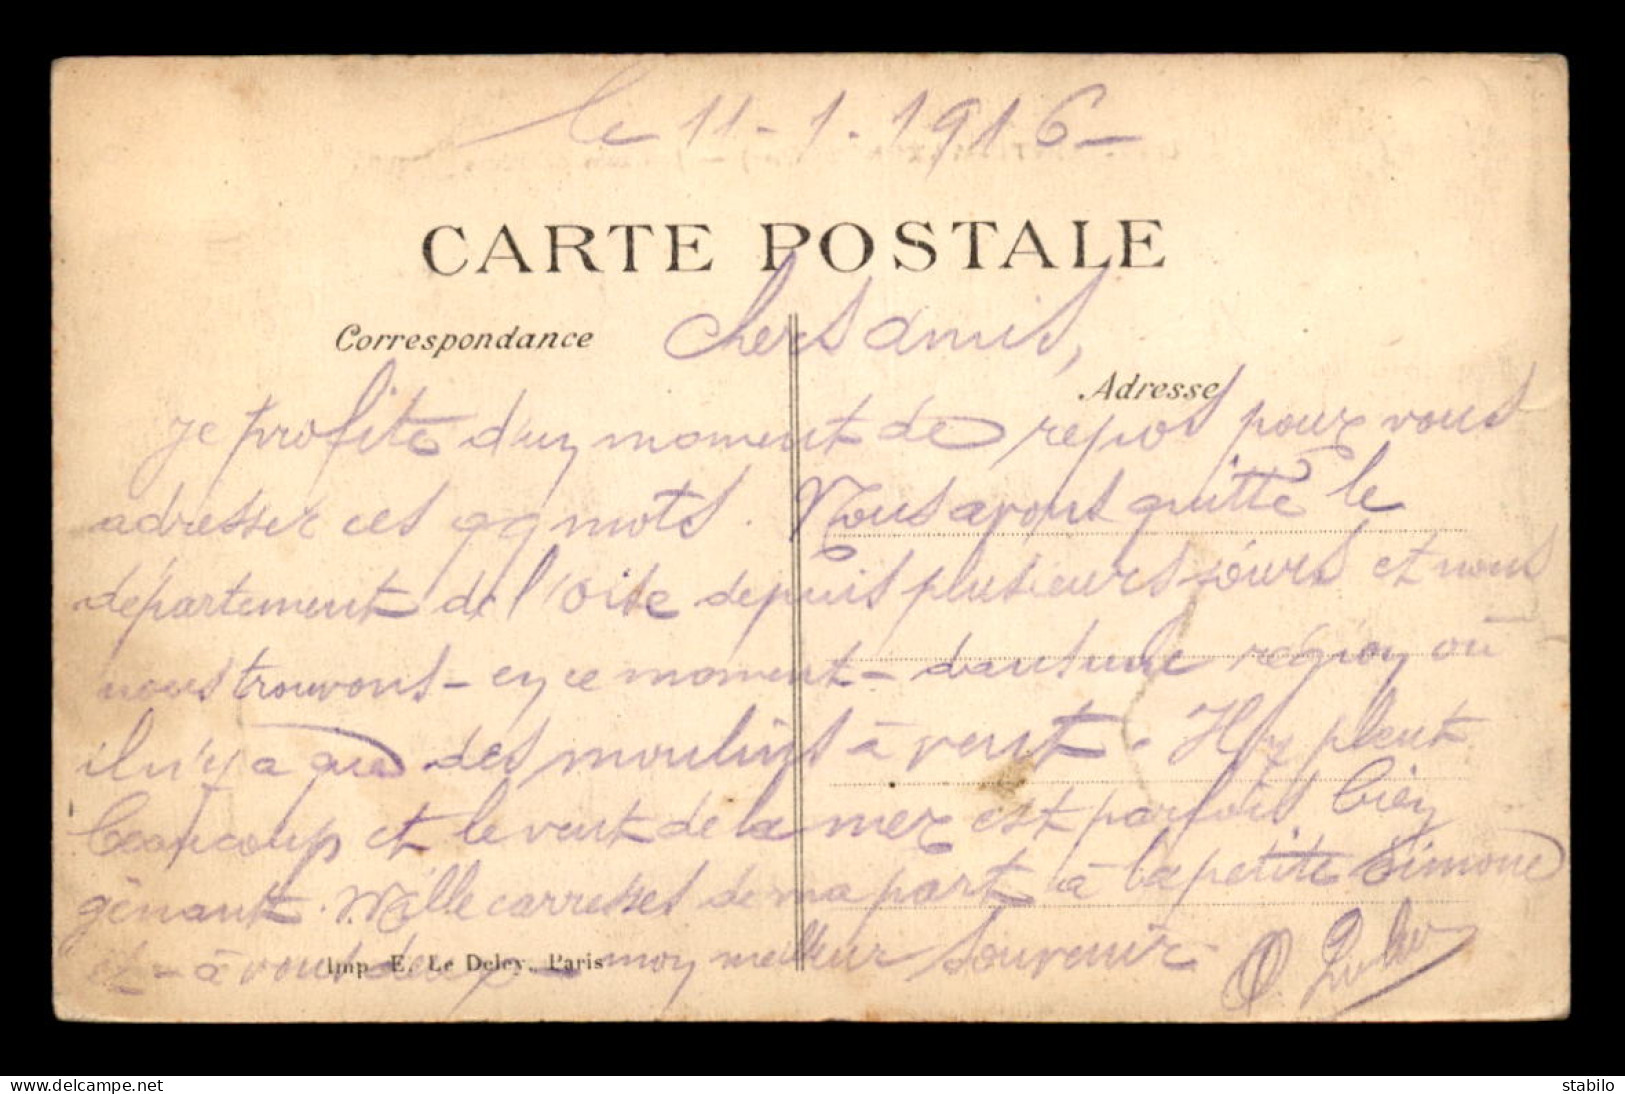 le 11-1.1916-
CARTE POSTALE
Correspondance
Chers amis,
Adresse
Je profite d'un moment de repos pour vous
adresser ces qq mots. Nous avons quitté le
département de l'Oise depuis plusieurs jours et nous
nous trouvons - en ce moment - dans une région où
il n'y a que des moulins à vent. Il y pleut
beaucoup et le vent de la mer est parfois bien
gênant. Mille carresses de ma part à la petite Simone
et - à vous deux - mon meilleur souvenir.
Imp. E. Le Deley, Paris
delcampe.net
stabilo